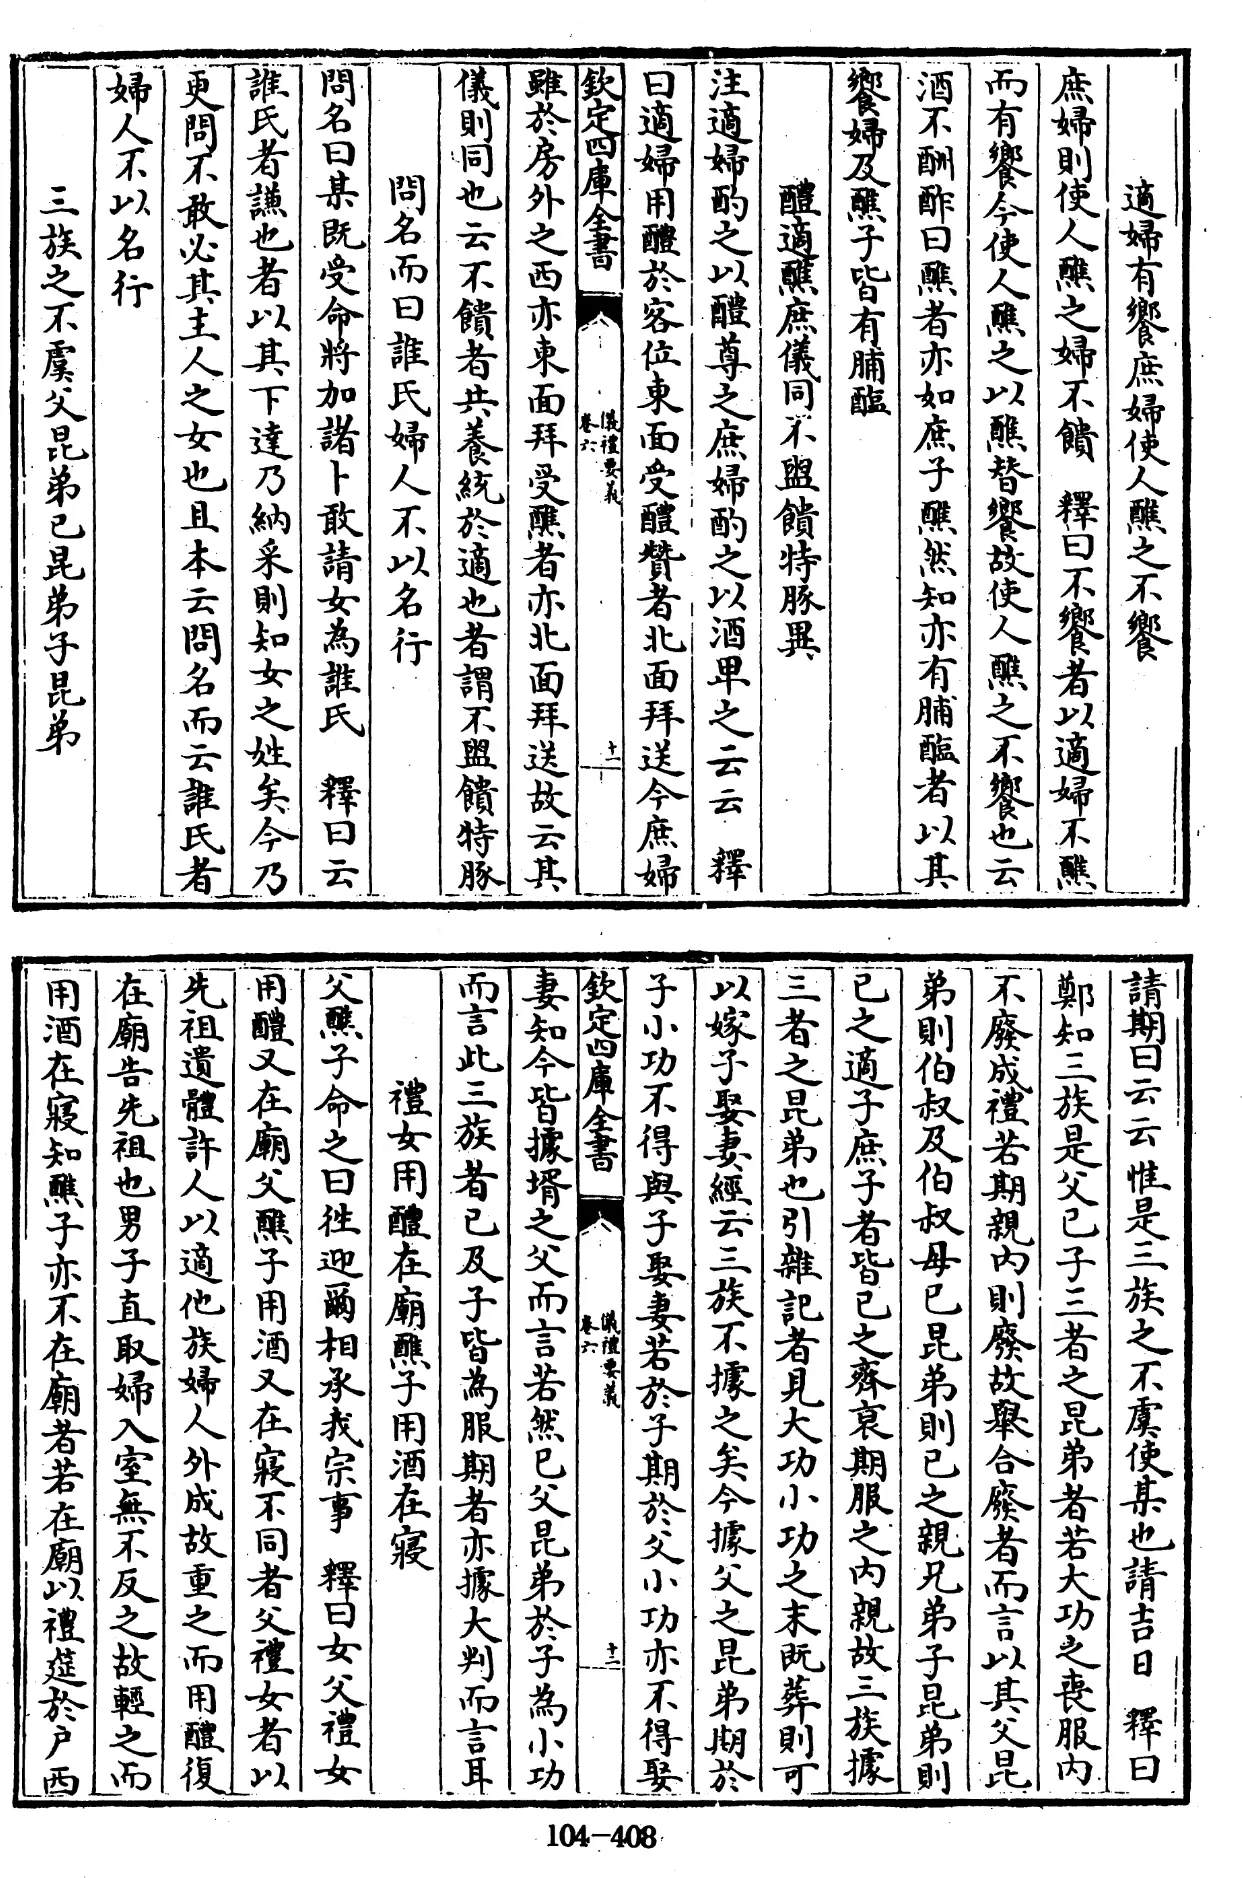 適婦有饗庶婦使人醮之不饗
庶婦則使人醮之婦不饋　釋曰不饗者以適婦不醮
而有饗今使人醮之以醮替饗故使人醮之不饗也云
酒不酬酢曰醮者亦如庶子醮然知亦有脯醢者以其
饗婦及醮子皆有脯醢
醴適醮庶儀同不盥饋特豚異
注適婦酌之以醴尊之庶婦酌之以酒卑之云云　釋
曰適婦用醴於客位東面受醴贊者北面拜送今庶婦
欽定四庫全書
儀禮要義
卷六
十一
雖於房外之西亦東面拜受醮者亦北面拜送故云其
儀則同也云不饋者共養統於適也者謂不盥饋特豚
問名而曰誰氏婦人不以名行
問名曰某既受命將加諸卜敢請女為誰氏　釋曰云
誰氏者謙也者以其下達乃納采則知女之姓矣今乃
更問不敢必其主人之女也且本云問名而云誰氏者
婦人不以名行
三族之不虞父昆弟已昆弟子昆弟
請期曰云云惟是三族之不虞使某也請吉日　釋曰
鄭知三族是父已子三者之昆弟者若大功之喪服内
不廢成禮若期親内則廢故舉合廢者而言以其父昆
弟則伯叔及伯叔母已昆弟則已之親兄弟子昆弟則
已之適子庶子者皆已之齊衰期服之内親故三族據
三者之昆弟也引雜記者見大功小功之末既葬則可
以嫁子娶妻經云三族不據之矣今據父之昆弟期於
子小功不得與子娶妻若於子期於父小功亦不得娶
欽定四庫全書
儀禮要義
卷六
十二
妻知今皆據壻之父而言若然已父昆弟於子為小功
而言此三族者已及子皆為服期者亦據大判而言耳
禮女用醴在廟醮子用酒在寢
父醮子命之曰徃迎爾相承我宗事　釋曰女父禮女
用醴又在廟父醮子用酒又在寢不同者父禮女者以
先祖遺體許人以適他族婦人外成故重之而用醴復
在廟告先祖也男子直取婦入室無不反之故輕之而
用酒在寢知醮子亦不在廟者若在廟以禮筵於户西
104-408